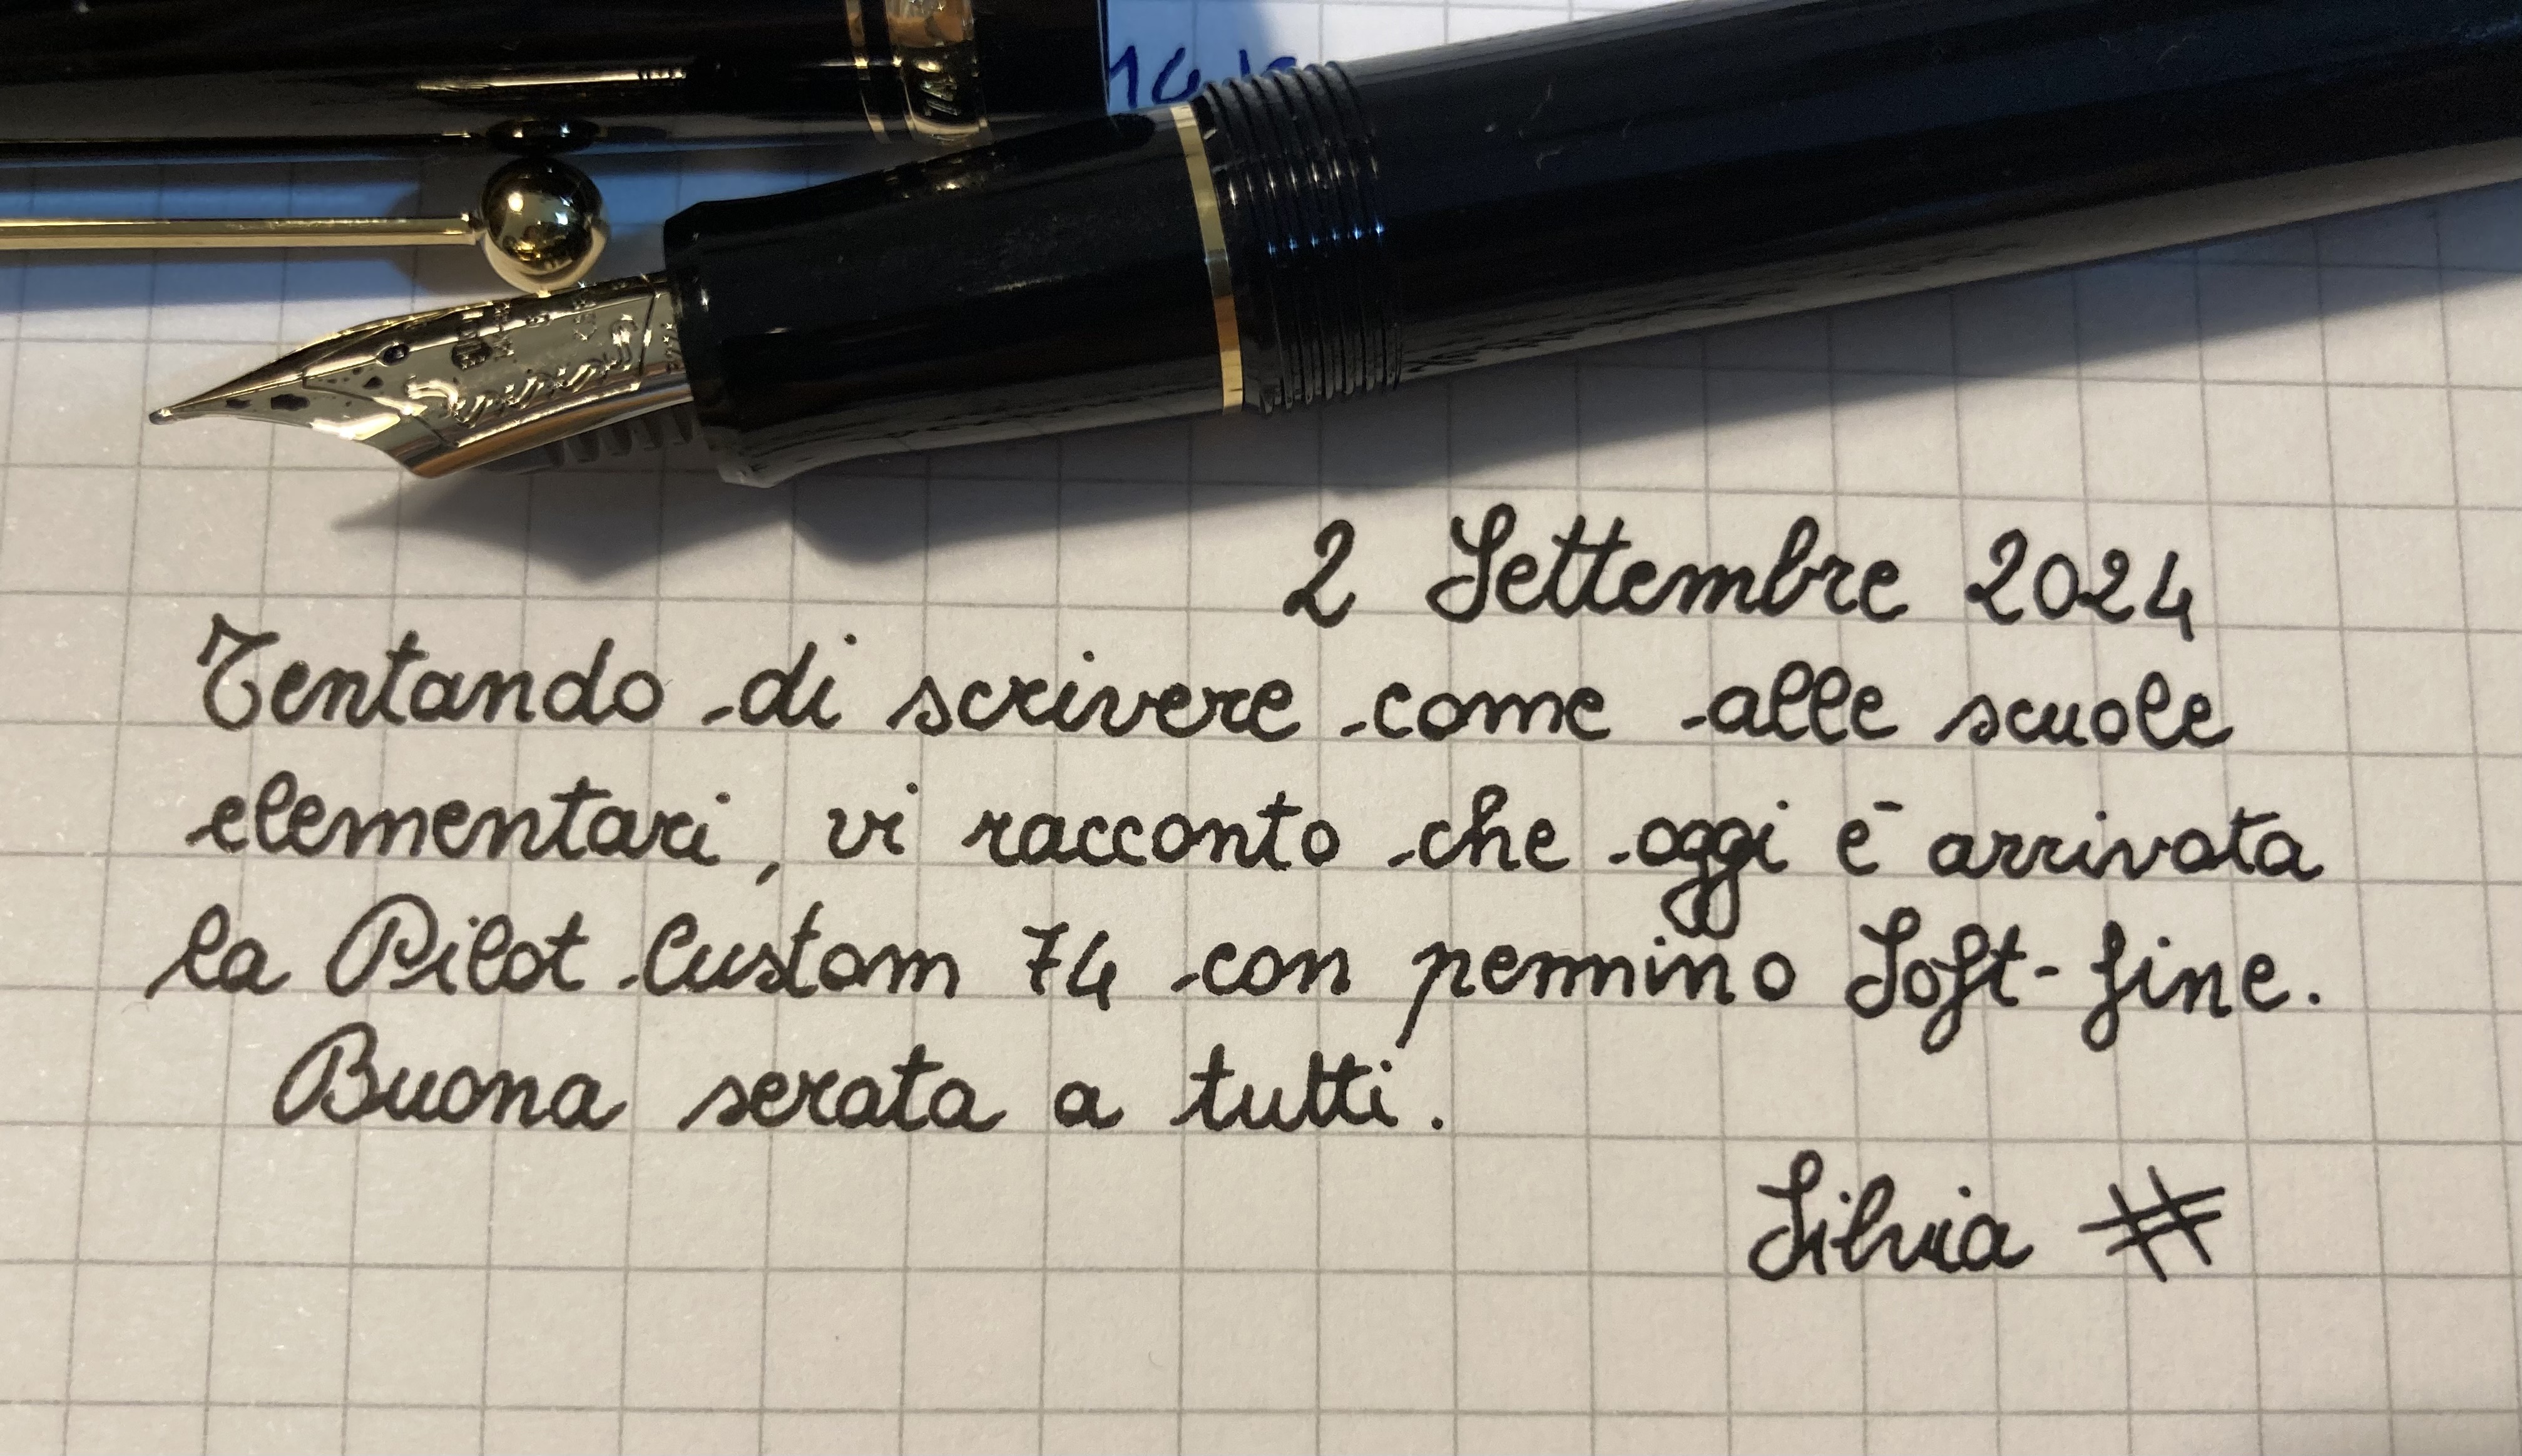 2 Settembre 2024
Tentando di scrivere come alle scuole
elementari, vi racconto che oggi è arrivata
la Pilot Custom 74 con pennino Soft-fine.
Buona serata a tutti.
Silvia #